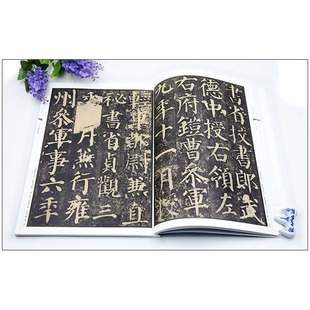 書省挍書郎武
德中授右領左
右府鎧曹參軍
九年十一月授
輕車都尉兼直
秘書省貞觀三
月兼行雍
州參軍事六年